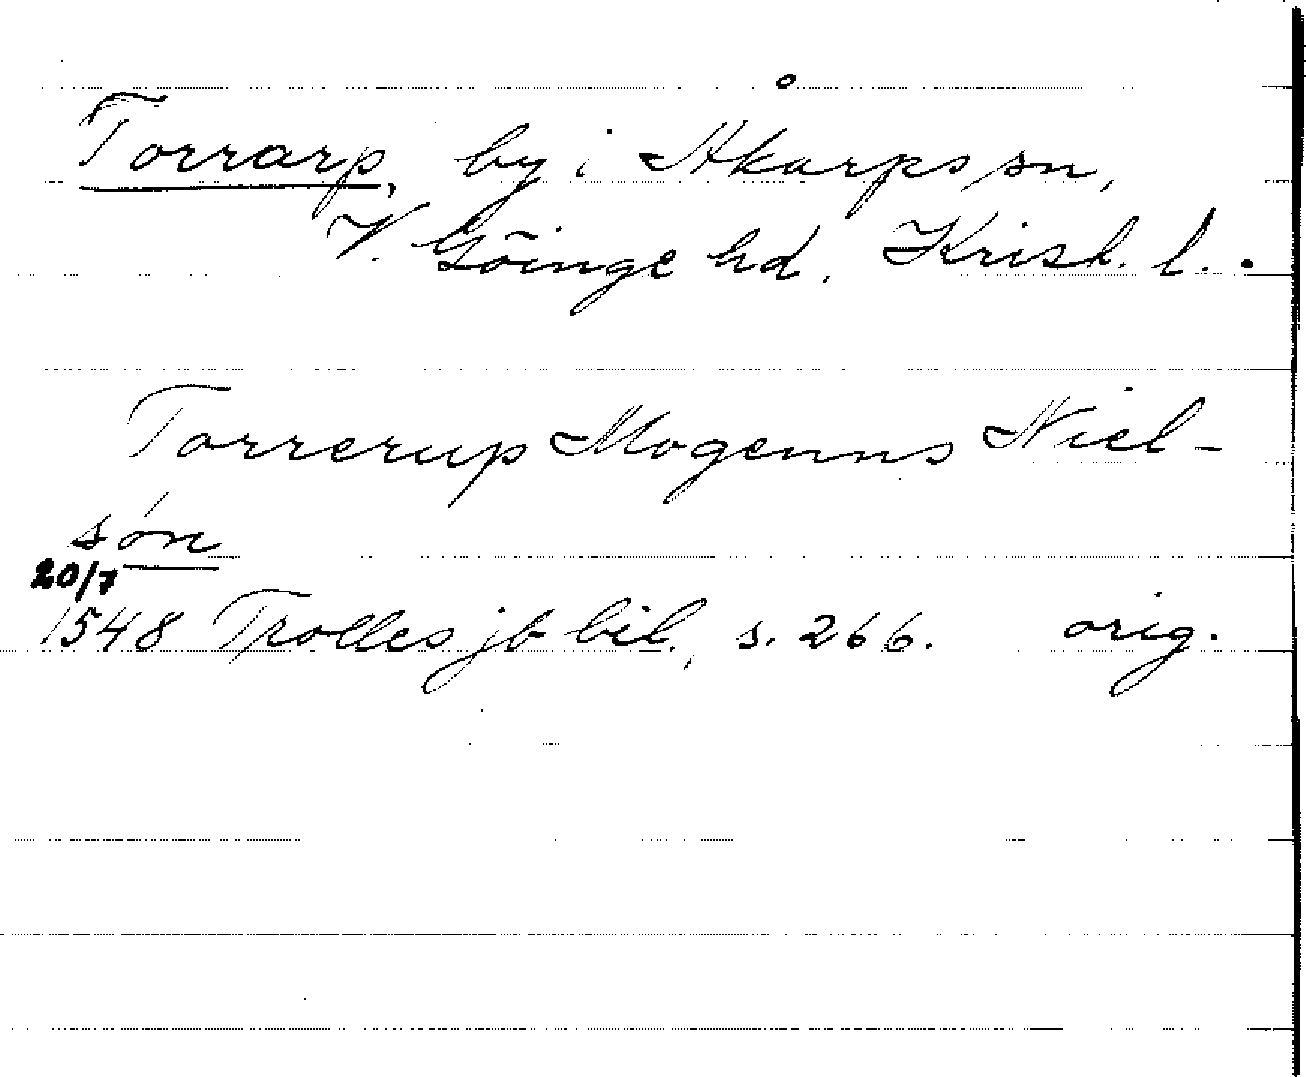 Torrarp, by i Åkarps sn,
V. Göinge hd. Krist. l.
Torrerup Mogenns Niel-
søn
20/7
1548 Trolles jb bil., s. 266. orig.